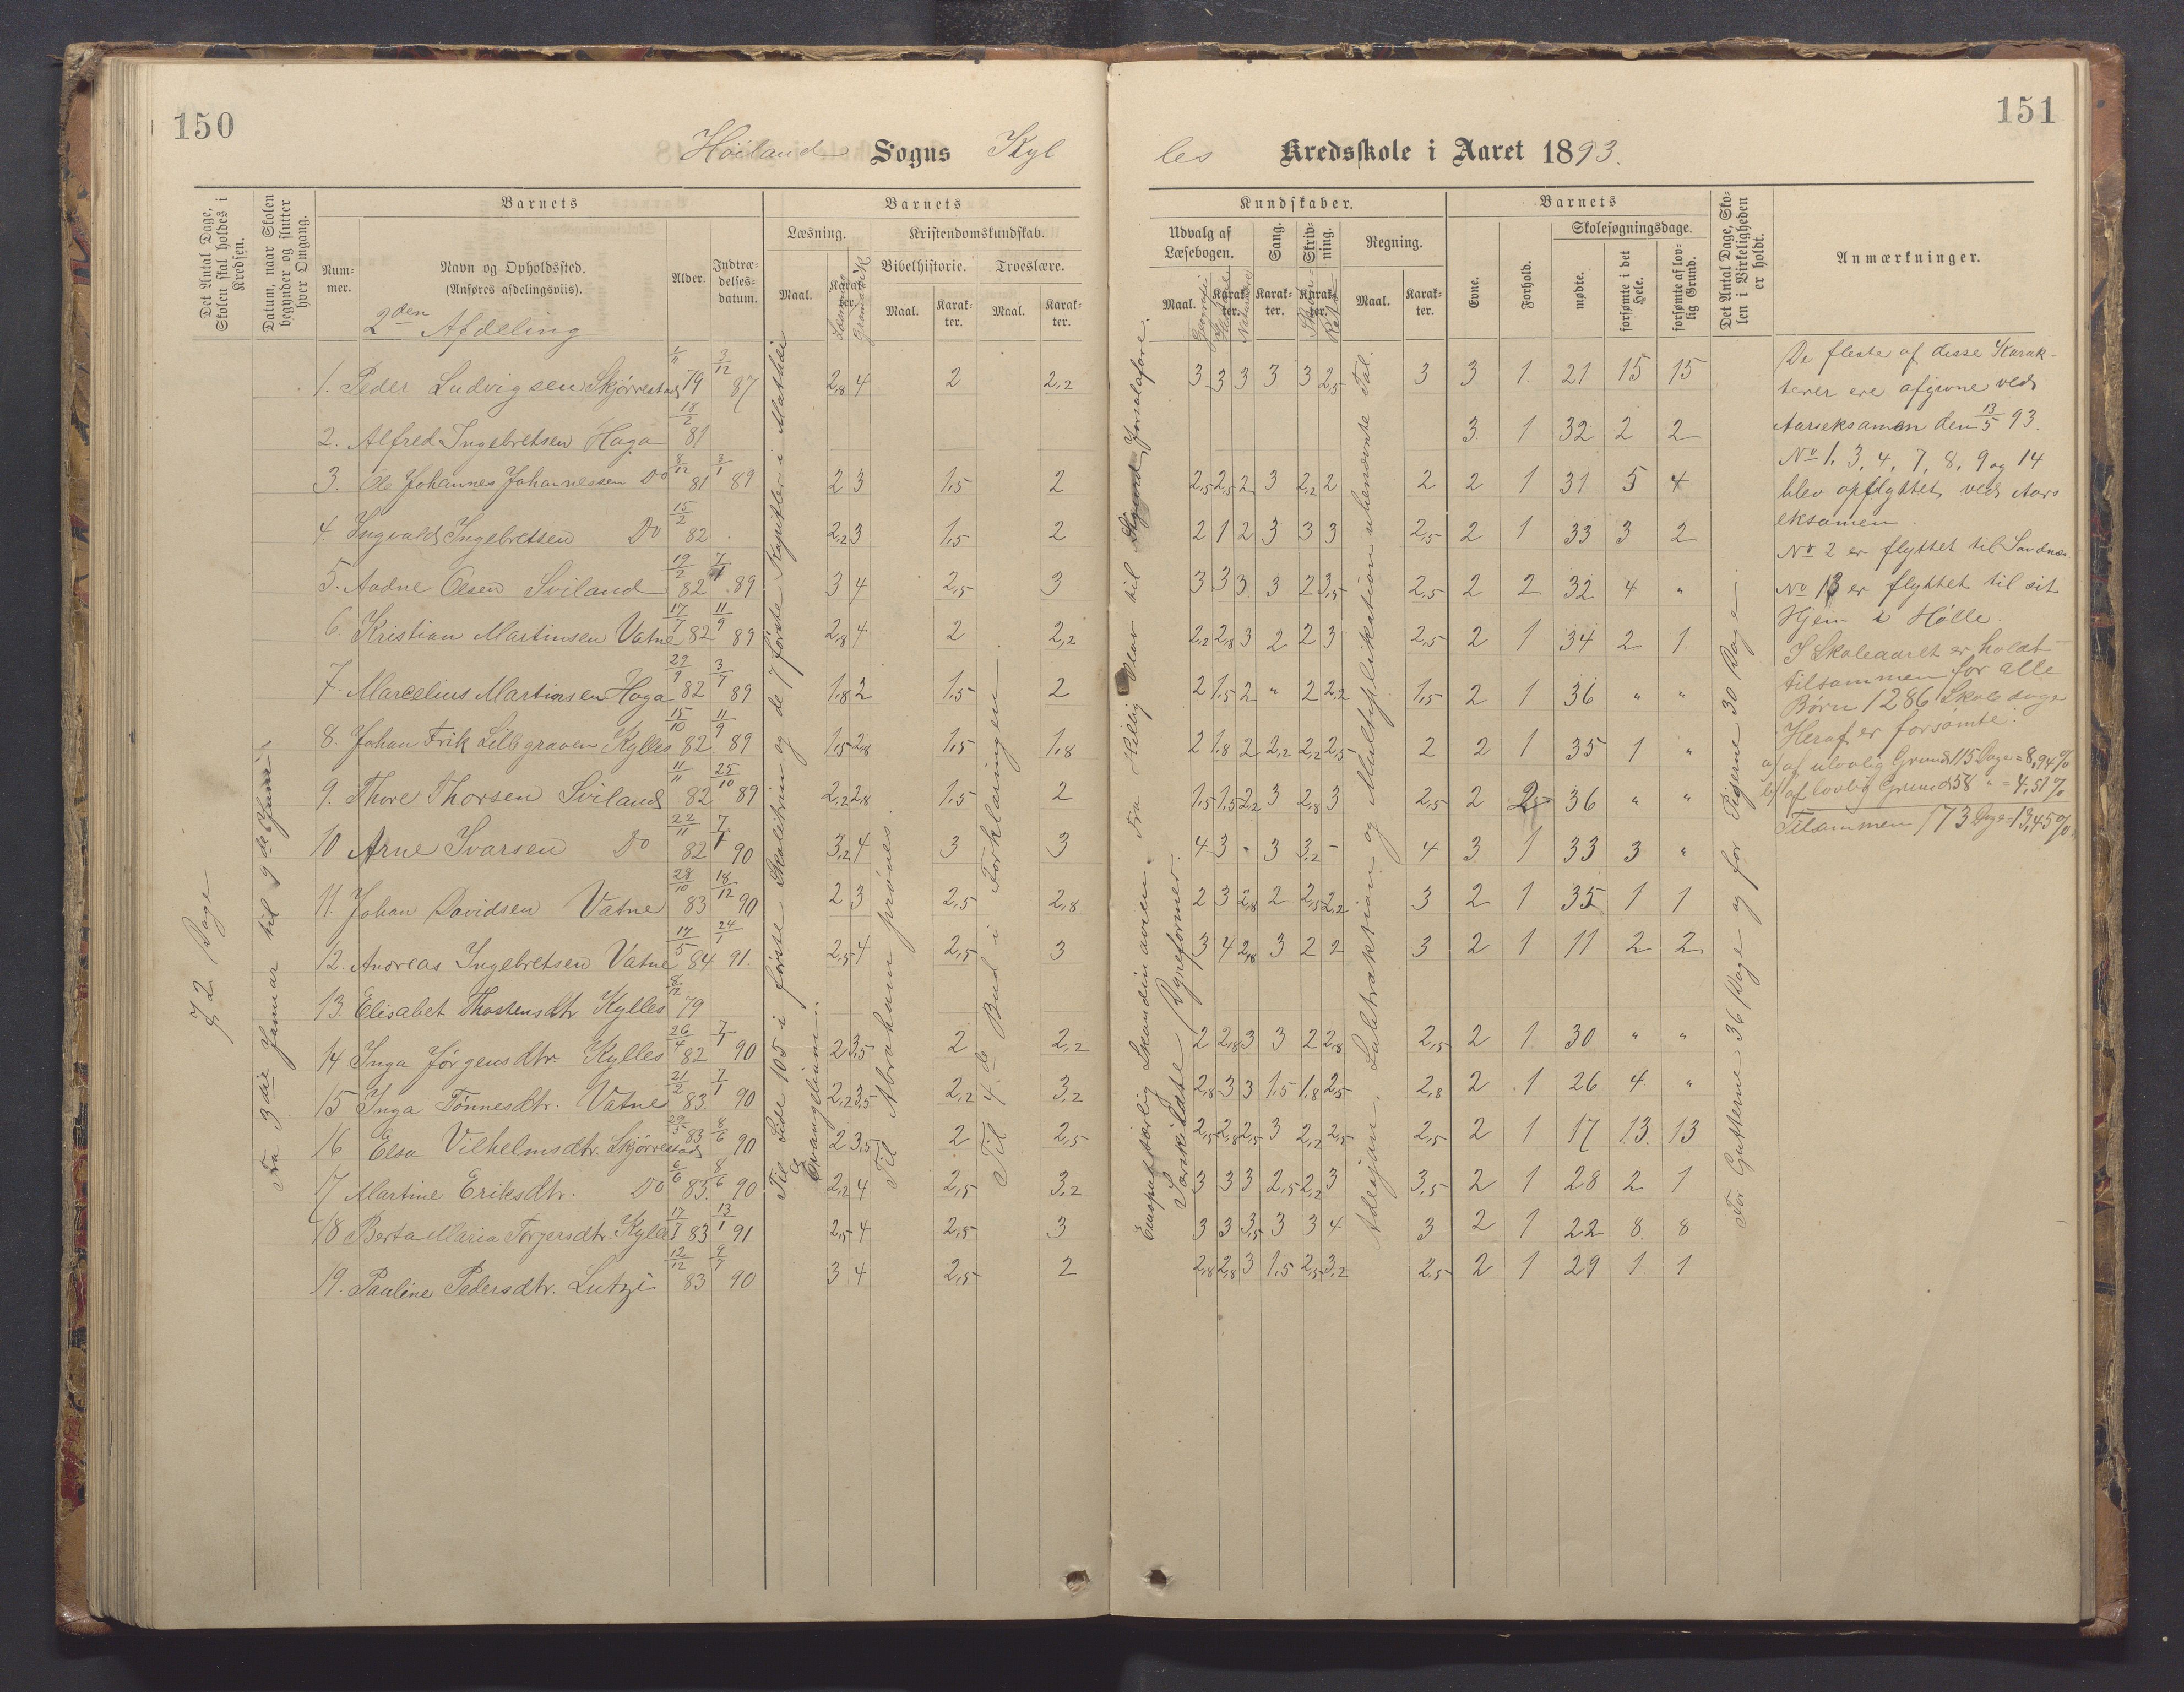 150
Höiland Sogns Kyl
Det Antal Dage, Skolen skal holdes i Kredsen.
Datum, naar Skolen begynder og slutter hver Omgang.
Barnets
Nummer.
Navn og Opholdssted.
(Anføres afdelingsviis).
Alder.
Indtrædelsesdatum.
2den Afdeling
Barnets
Læsning.
Kristendomskundskab.
Bibelhistorie.
Troeslære.
Maal.
Karakter.
Maal.
Karakter.
Maal.
Karakter.
72 Dage
Fra 3die Januar til 9de Juni
1. Peder Ludvigsen Skjörrestad 1/11 79 3/12 87 2,8 4 2 2,2
2. Alfred Ingebretsen Haga 18/2 81
3. Ole Johannes Johannessen Do 8/12 81 3/1 89 2 3 1,5 2
4. Ingvald Ingebretsen Do 15/2 82 2,2 3 1,5 2
5. Aadne Olsen Sviland 19/2 82 7/1 89 3 4 2,5 3
6. Kristian Martinsen Vatne 17/7 82 11/9 89 2,8 4 2 2,2
7. Marcelius Martinsen Haga 29/9 82 3/7 89 1,8 2 1,5 2
8. Johan Erik Lillegraven Kylles 15/10 82 11/9 89 1,5 2,8 1,5 1,8
9. Thore Thorsen Sviland 11/11 82 25/10 89 2,2 2,8 1,5 2
10 Arne Ivarsen Do 22/11 82 7/1 90 3,2 4 3 3
11. Johan Davidsen Vatne 28/10 83 18/12 90 2 3 2,5 2,8
12. Andreas Ingebretsen Vatne 17/5 84 24/1 91. 2,5 4 2,5 3
13. Elisabet Thostensdtr Kylles 79
14 Inga Jörgensdtr Kylles 26/4 82 7/1 90 2 3,5 2 2,2
15 Inga Tönnesdtr. Vatne 21/2 83. 7/1 90 2,2 3,5 2,2 3,2
16 Elsa Vilhelmsdtr. Skjörrestad 29/5 83 8/6 90 2 3,5 2 2,5
17 Martine Eriksdtr. Do 6/6 83. 8/6 90 2,2 4 2,5 3,2
18 Berta Maria Torgersdtr. Kylles 17/7 83 13/1 91 2,5 4 2,5 3
19. Pauline Pedersdtr. Lutzi 12/12 83 9/7 90 3 4 2,5 2
Til Side 105 i förste Skoletrin og de 7 förste Kapitler i Matthæi
Evangelium.
Til Abraham pröves.
Til 4de Bud i Forklaringen.
151
les Kredsskole i Aaret 1893.
Kundskaber.
Udvalg af Læsebogen.
Sang.
Skrivning.
Regning.
Maal.
Karakter.
Karakter.
Karakter.
Maal.
Karakter.
Barnets
Evne.
Forhold.
Skolesøgningsdage.
mødte.
forsømte i det Hele.
forsømte af lovlig Grund.
Det Antal Dage, Skolen i Virkeligheden er holdt.
Anmærkninger.
3 3 3 3 3 2,5 3 3 1. 21 15 15
3 1 32 2 2
2,5 2,5 2 3 2,2 2 2 2 1 31 5 4
2 1 2 3 3 3 2,5 2 1 33 3 2
3 3 3 3 2 3,5 2,5 2 2 32 4 "
2,2 2,8 3 2 2 3 2,5 2 1 34 2 1
2 1,5 2 " 2 2,2 1,5 2 1 36 " "
2 1,8 2 2,2 2,2 2,5 2 2 1 35 1 "
1,5 1,5 2,2 3 2,8 3 2,5 2 2 36 " "
4 3 - 3 3,2 - 4 3 1 33 3 "
2 3 2,8 2 2,5 2,2 3 2 1 35 1 1
3 4 2,8 3 2 2 3 2 1 11 2 2
2 2,8 3 3 2 2,8 2,5 2 1 30 " "
2,8 3 3 1,5 1,8 2,5 2,8 2 1 26 4 "
2,5 2,8 2,5 3 2,2 2,5 2,5 2 1 17 13. 13
3 3 3 2,5 2,2 3 3,5 2 1 28 2 1
3 3 3,5 3 3 4 3 2 1 22 8. 8
2,8 2,8 3 1,5 2,5 3,2 2,5 2 1 29 1 1
Adisjon, Subtraktsion og Multiplikation ubenævnte Tal.
For Gutterne 36 Dage og for Pigerne 30 Dage
De fleste af disse Karak-
terer ere afgivne ved
Aarseksamen den 13/5 93.
No 1, 3, 4, 7, 8, 9 og 14
blev opflyttet ved Aars
eksamen.
No 2 er flyttet til Sandnæs.
No 13 er flyttet til sit
Hjem i Hölle.
I Skoleaaret er holdt
tilsammen for alle
Börn 1286 Skoledage
Heraf er forsömte:
a/ af ulovlig Grund 115 Dage = 8,94%
b/ af lovlig Grund 58 " = 4,51%
Tilsammen 173 Dage = 13,45%